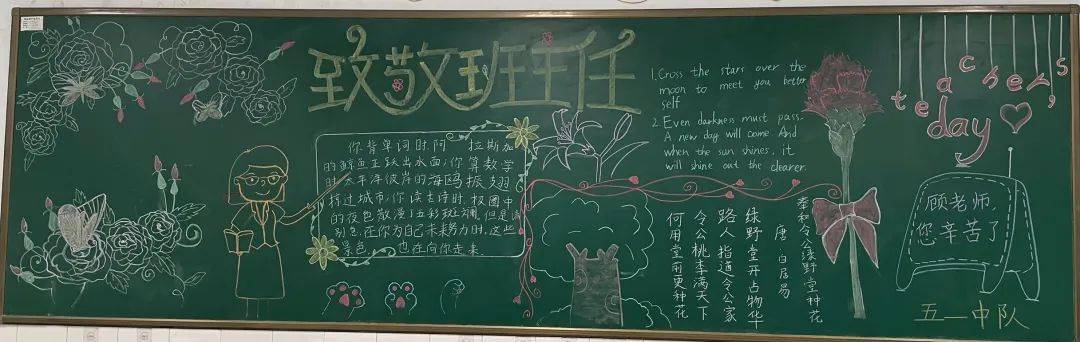 致敬班主任
你背单词时,阿拉斯加
的鳕鱼正跃出水面;你算数学
时,太平洋彼岸的海鸥振翅
掠过城市;你读古诗时,极圈中
的夜色散漫了五彩斑斓.但是请
别急,在你为自己未来努力时,这些
景色 也在向你走来.
1.Cross the stars over the
moon to meet you better
self
2.Even darkness must pass.
A new day will come. And
when the sun shines, it
will shine out the clearer.
奉和令公绿野堂种花
唐 白居易
绿野堂开占物华
路人指道令公家
令公桃李满天下
何用堂前更种花
teachers'
day
顾老师,
您辛苦了
五一中队